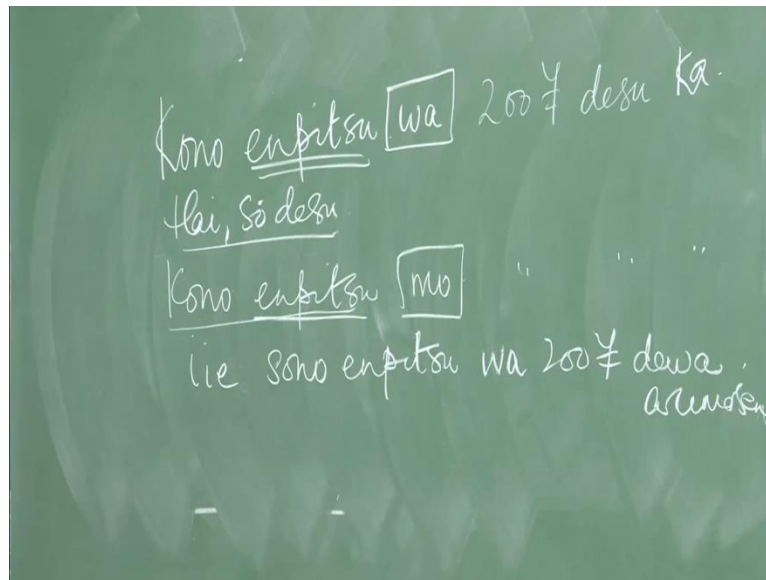 Kono enpitsu wa 200 ¥ desu ka.
Hai, sō desu
Kono enpitsu mo " " "
iie sono enpitsu wa 200 ¥ dewa.
arimasen